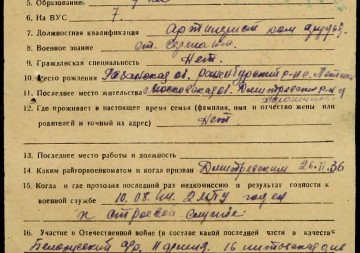 5. Образование 7 кл
6. На ВУС 7.
7. Должностная квалификация Артиллерист ком орудия.
8. Военное звание ст. сержант.
9. Гражданская специальность Нет.
10. Место рождения Рязанская обл, Раненбургский р-н с.
11. Последнее место жительства Московская обл, Дмитровский р-н
12. Где проживает в настоящее время семья (фамилия, имя и отчество жены или
родителей и точный их адрес) Нет
13. Последнее место работы и должность
14. Каким райгорвоенкоматом и когда призван Дмитровским 26.11.36
15. Когда и где проходил последний раз медкомиссию и результат годности к
военной службе 10.08.44. годен
к строевой службе
16. Участие в Отечественной войне (в составе какой последней части и в качестве
Белорусский фр. 16